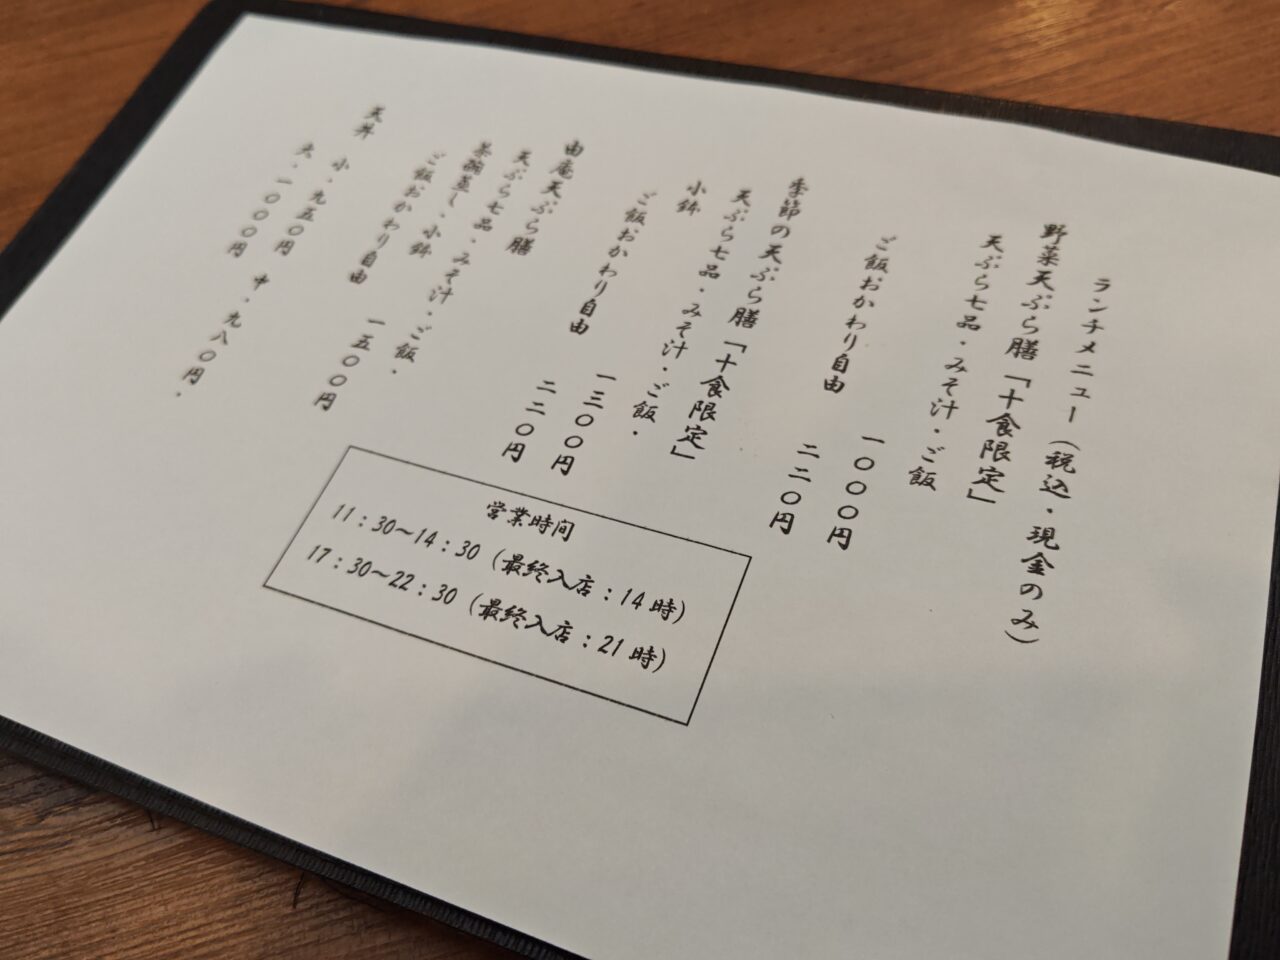 ランチメニュー（税込・現金のみ）
野菜天ぷら膳「十食限定」
天ぷら七品・みそ汁・ご飯
一〇〇〇円
ご飯おかわり自由　二二〇円
季節の天ぷら膳「十食限定」
天ぷら七品・みそ汁・ご飯・
小鉢　一三〇〇円
ご飯おかわり自由　二二〇円
由庵天ぷら膳
天ぷら七品・みそ汁・ご飯・
茶碗蒸し・小鉢
ご飯おかわり自由　一五〇〇円
天丼
小、九五〇円　中、九八〇円、
大、一〇〇〇円
営業時間
11：30～14：30（最終入店：14時）
17：30～22：30（最終入店：21時）